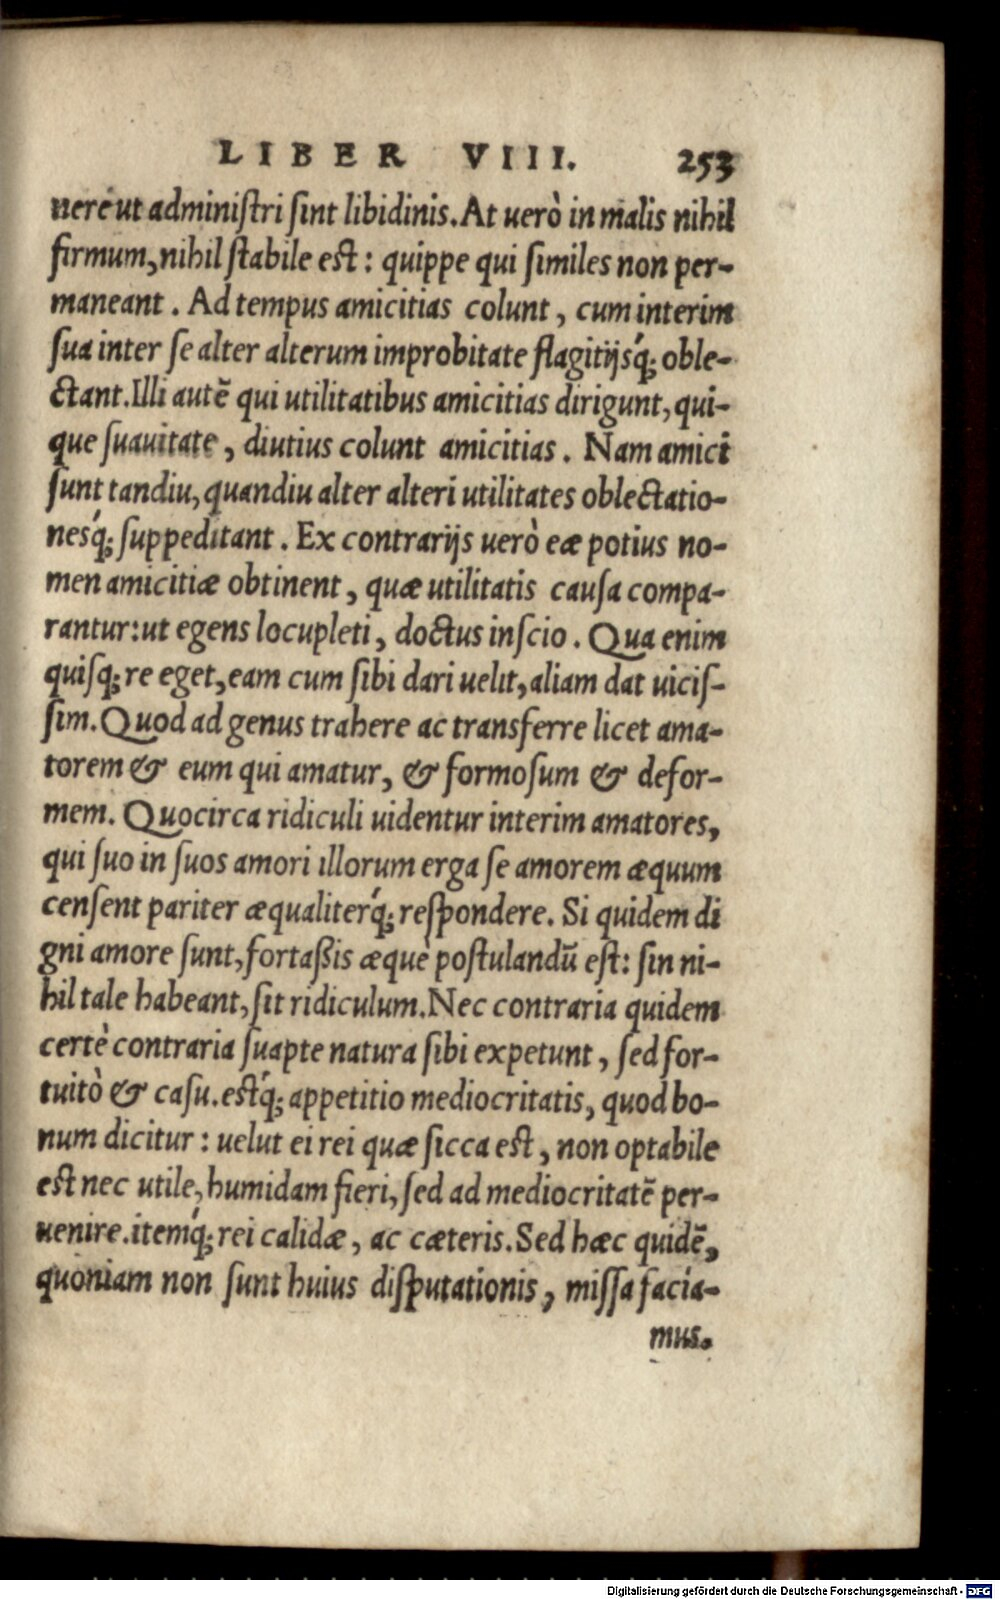 LIBER VIII. 253
nere ut adminiſtri ſint libidinis. At uerò in malis nihil
firmum, nihil ſtabile est: quippe qui ſimiles non per-
maneant. Ad tempus amicitias colunt, cum interim
ſua inter ſe alter alterum improbitate flagitijsq́; oble-
ctant. Illi autē qui utilitatibus amicitias dirigunt, qui-
que ſuauitate, diutius colunt amicitias. Nam amici
ſunt tandiu, quandiu alter alteri utilitates oblectatio-
nesq́; ſuppeditant. Ex contrarijs uerò eæ potius no-
men amicitiæ obtinent, quæ utilitatis cauſa compa-
rantur: ut egens locupleti, doctus inſcio. Qua enim
quiſq; re eget, eam cum ſibi dari uelit, aliam dat uiciſ-
ſim. Quod ad genus trahere ac transferre licet ama-
torem & eum qui amatur, & formoſum & defor-
mem. Quocirca ridiculi uidentur interim amatores,
qui ſuo in ſuos amori illorum erga ſe amorem æquum
cenſent pariter æqualiterq́; reſpondere. Si quidem di
gni amore ſunt, fortaßis æquè poſtulandū eſt: ſin ni-
hil tale habeant, ſit ridiculum. Nec contraria quidem
certè contraria ſuapte natura ſibi expetunt, ſed for-
tuitò & caſu. estq́; appetitio mediocritatis, quod bo-
num dicitur: uelut ei rei quæ ſicca est, non optabile
est nec utile, humidam fieri, ſed ad mediocritatē per-
uenire. itemq́; rei calidæ, ac cæteris. Sed hæc quidē,
quoniam non ſunt huius diſputationis, miſſa facia-
mus.
Digitalisierung gefördert durch die Deutsche Forschungsgemeinschaft - DFG